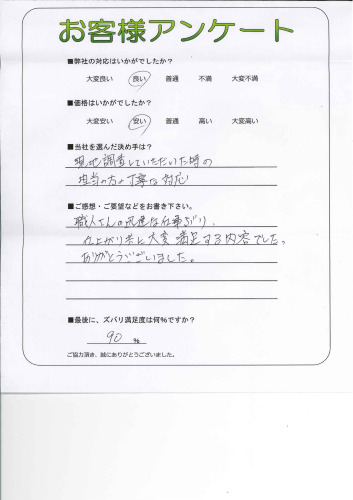 お客様アンケート
■弊社の対応はいかがでしたか？
大変良い 良い 普通 不満 大変不満
■価格はいかがでしたか？
大変安い 安い 普通 高い 大変高い
■当社を選んだ決め手は？
現地調査していただいた時の
担当の方の丁寧な対応
■ご感想・ご要望などをお書き下さい。
職人さんの迅速な仕事ぶり、
仕上がり共に大変満足する内容でした。
ありがとうございました。
■最後に、ズバリ満足度は何％ですか？
90 %
ご協力頂き、誠にありがとうございました。